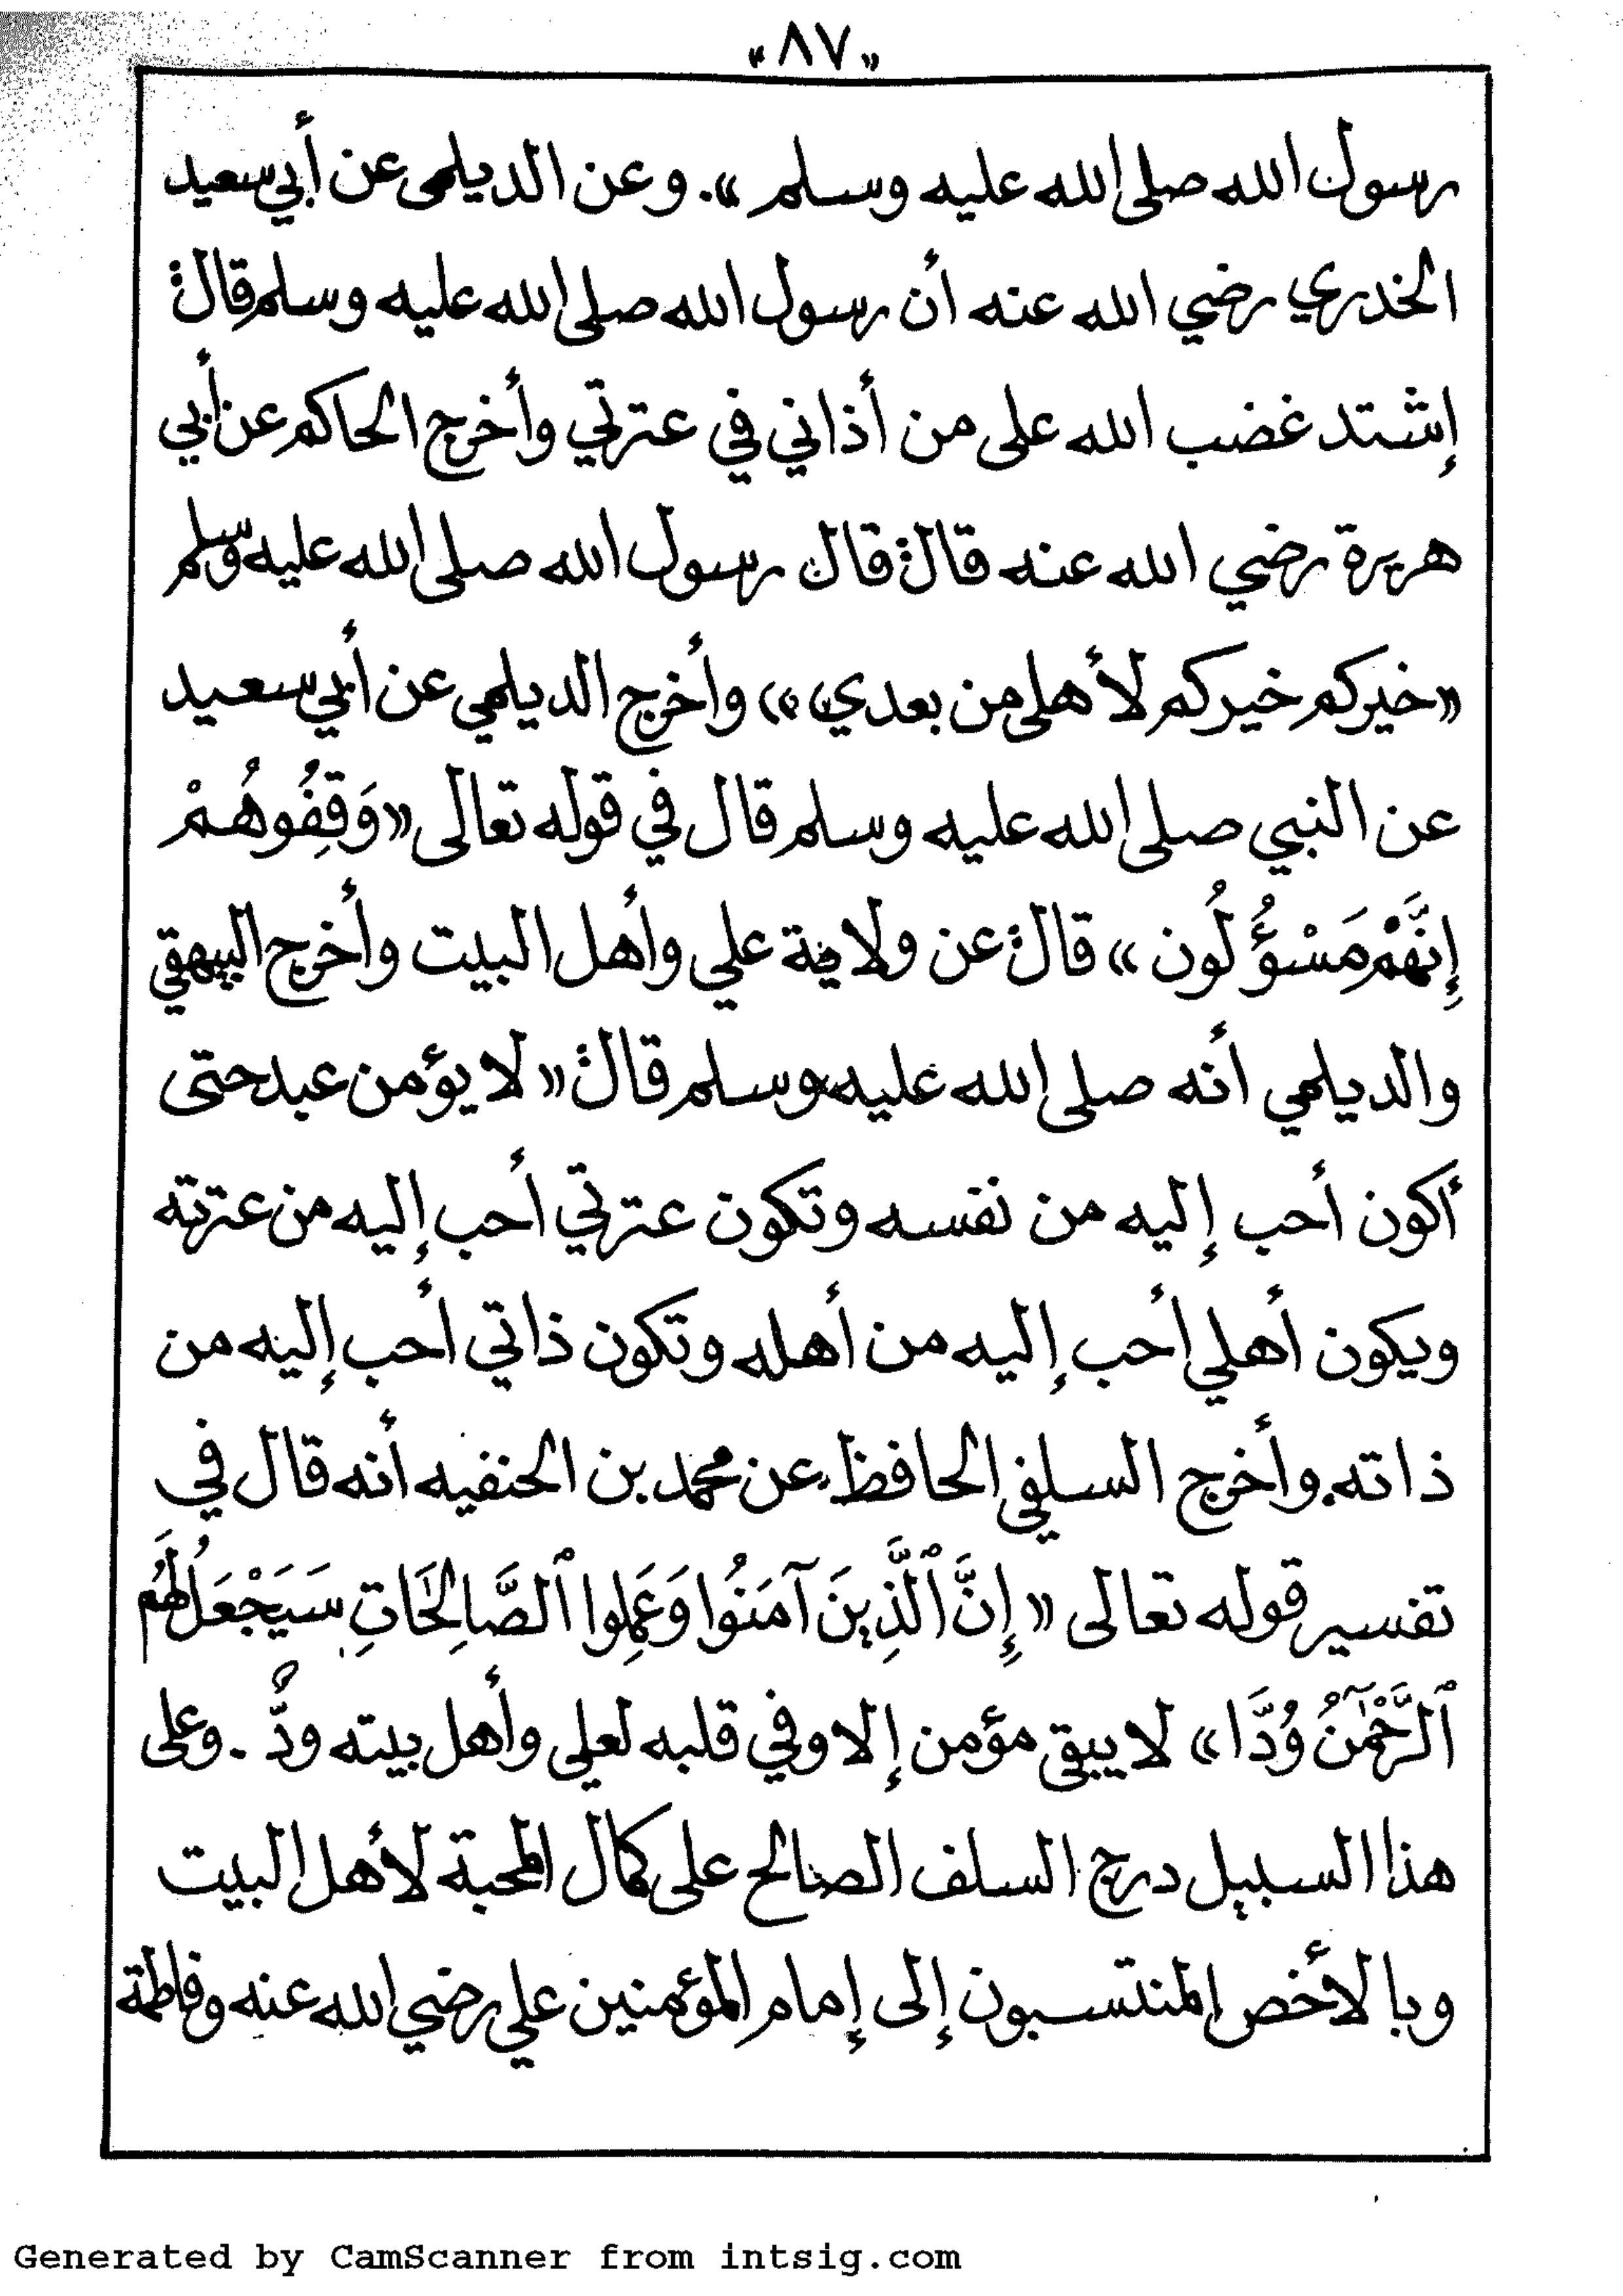 «٨٧»
رسول الله صلى الله عليه وسلم». وعن الديلمي عن أبي سعيد
الخدري رضي الله عنه أن رسول الله صلى الله عليه وسلم قال:
إشتد غضب الله على من أذاني في عترتي وأخرج الحاكم عن أبي
هريرة رضي الله عنه قال: قال رسول الله صلى الله عليه وسلم
«خيركم خيركم لأهلي من بعدي» وأخرج الديلمي عن أبي سعيد
عن النبي صلى الله عليه وسلم قال في قوله تعالى «وَقِفُوهُمْ
إِنَّهُمْ مَسْؤُلُون» قال: عن ولاية علي وأهل البيت وأخرج البيهقي
والديلمي أنه صلى الله عليه وسلم قال: «لا يؤمن عبد حتى
أكون أحب إليه من نفسه وتكون عترتي أحب إليه من عترته
ويكون أهلي أحب إليه من أهله وتكون ذاتي أحب إليه من
ذاته. وأخرج السلفي الحافظ عن محمد بن الحنفيه أنه قال في
تفسير قوله تعالى «إِنَّ ٱلَّذِينَ آمَنُوا وَعَمِلوا ٱلصَّالِحَاتِ سَيَجْعَلُ لَهُم
ٱلرَّحْمَٰنُ وُدَّا» لا يبقى مؤمن إلا وفي قلبه لعلي وأهل بيته ودٌّ. وعلى
هذا السبيل درج السلف الصالح على كمال المحبة لأهل البيت
وبالأخص المنتسبون إلى إمام المؤمنين علي رضي الله عنه وفاطمة
Generated by CamScanner from intsig.com